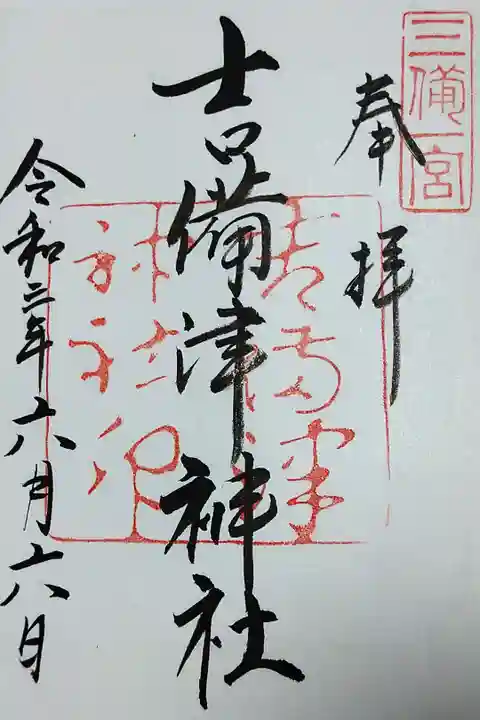 三備一宮
奉拝
吉備津神社
令和三年六月六日